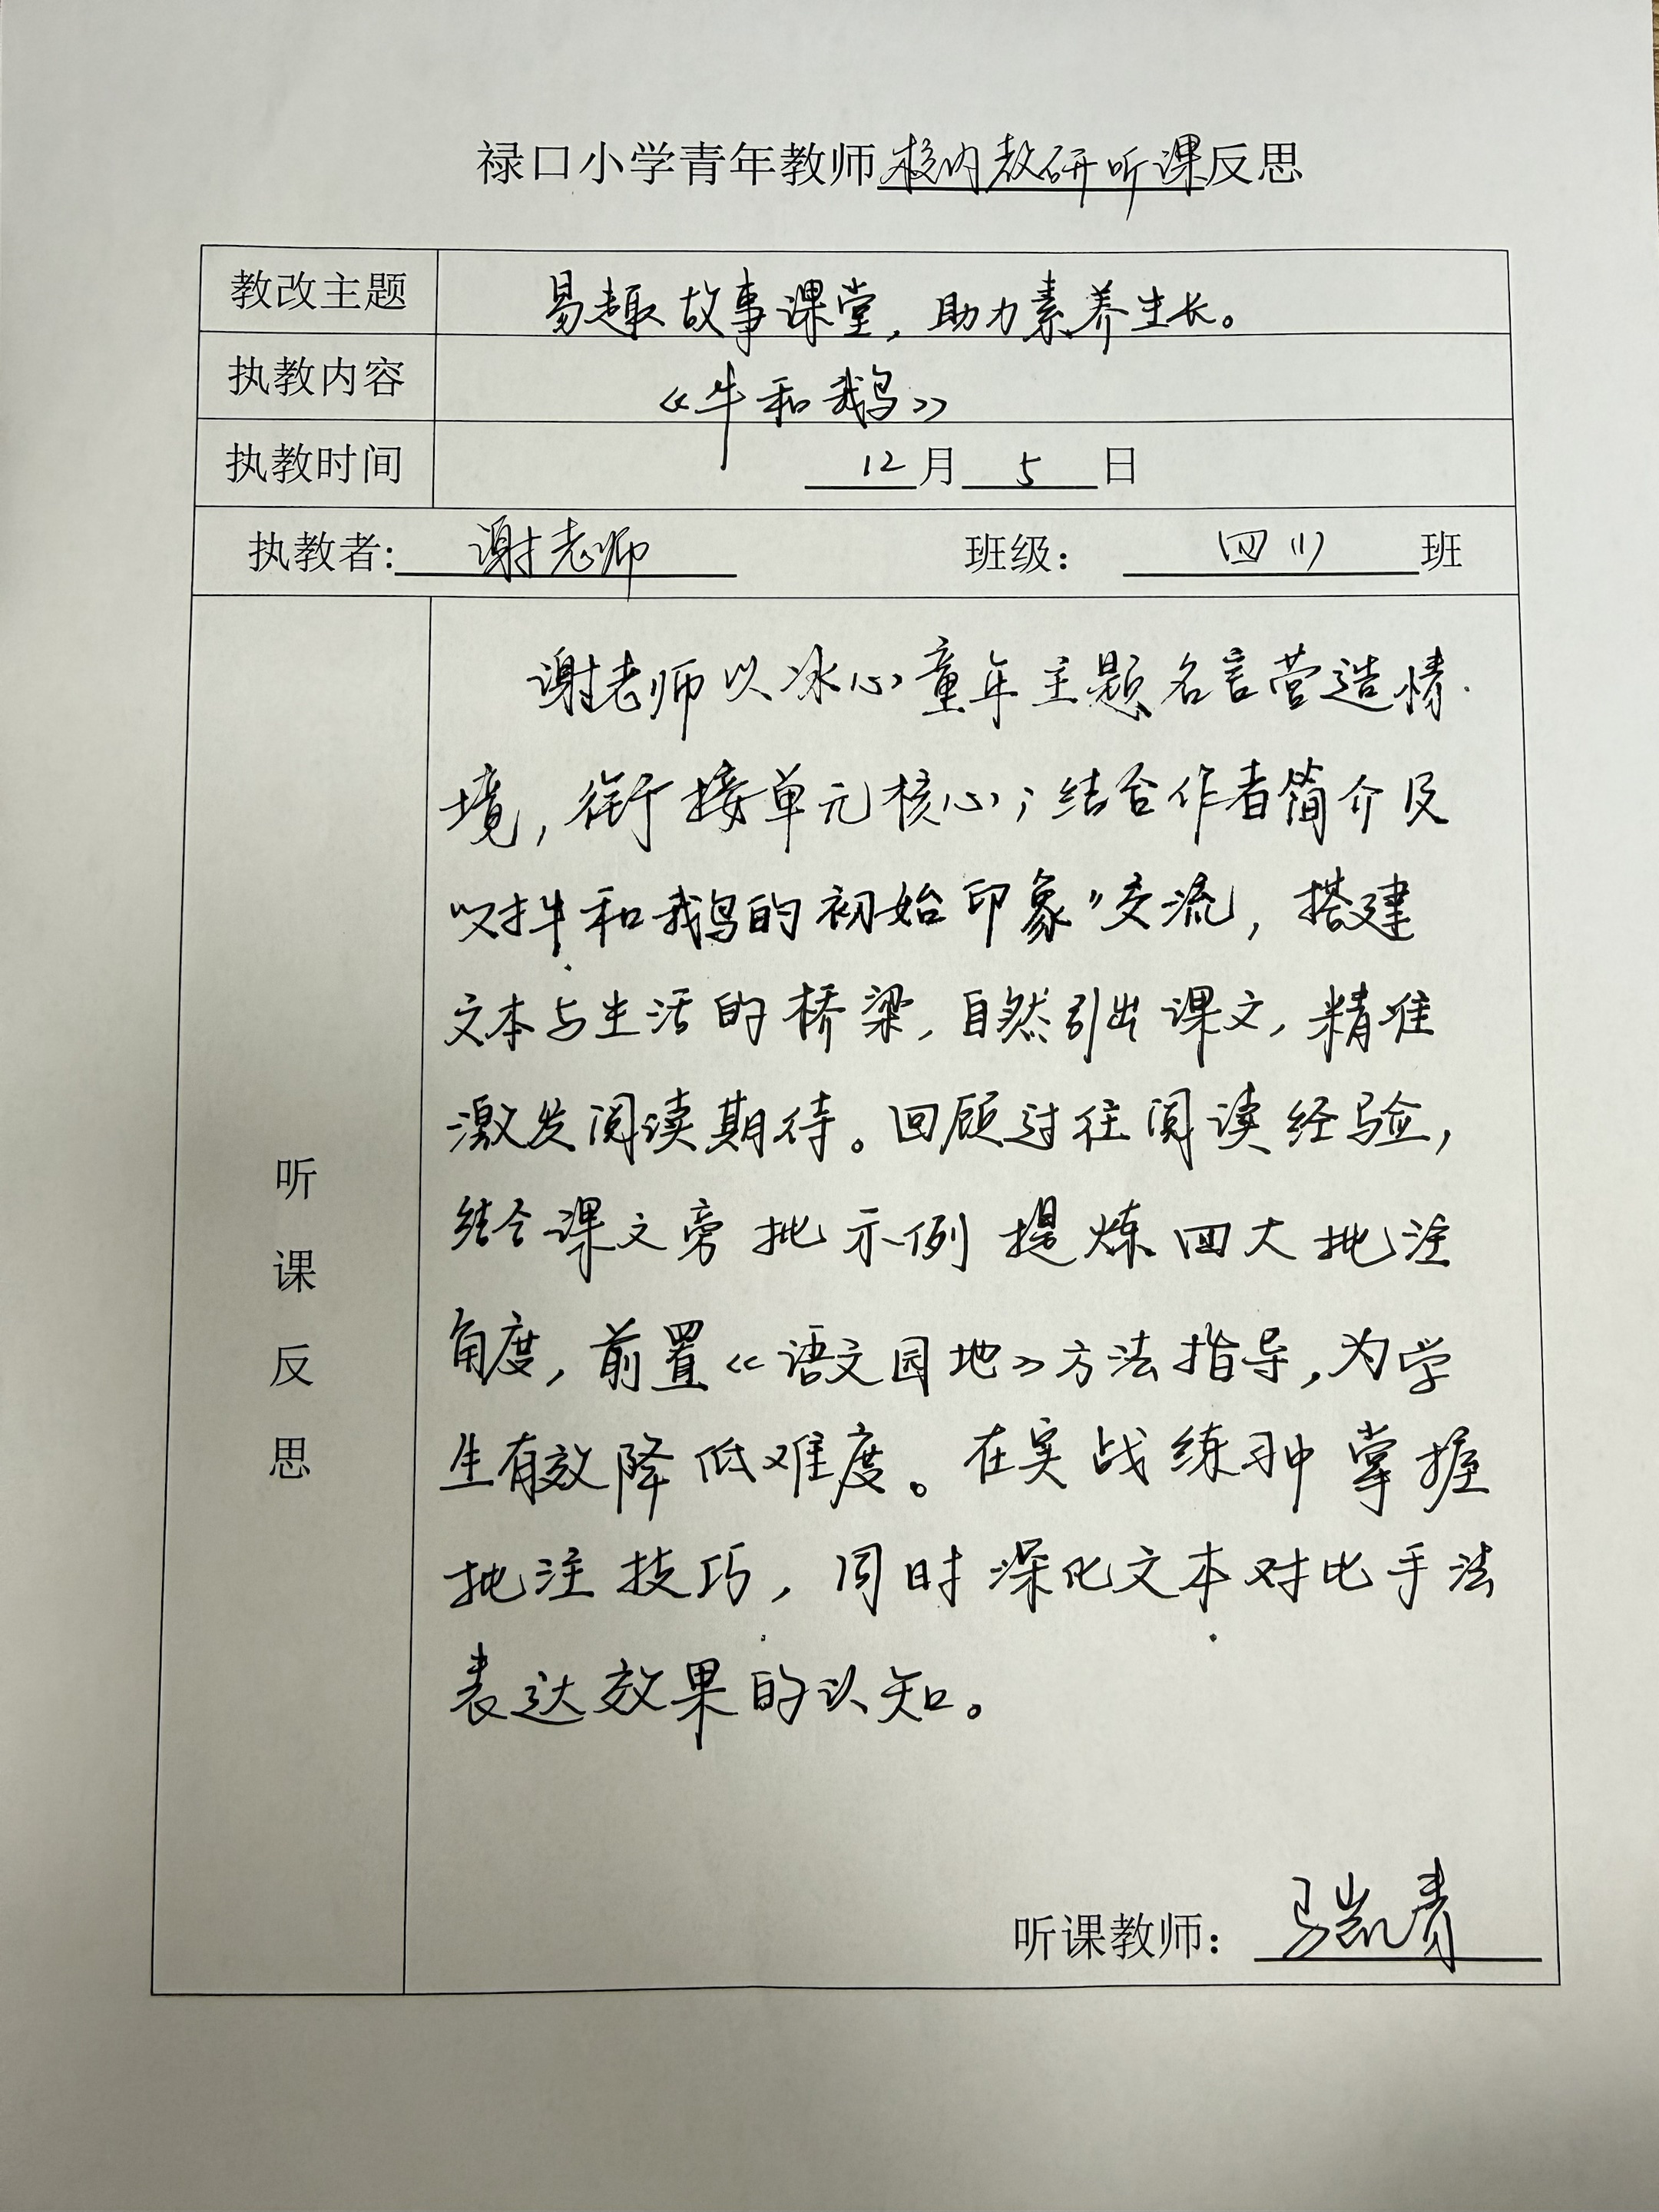 禄口小学青年教师校内教研听课反思
教改主题 易趣故事课堂，助力素养生长。
执教内容 《牛和鹅》
执教时间 12月5日
执教者：谢老师 班级：四(1)班
听课反思
谢老师以冰心童年主题名言营造情
境，衔接单元核心；结合作者简介及
“对牛和鹅的初始印象”交流，搭建
文本与生活的桥梁，自然引出课文，精准
激发阅读期待。回顾过往阅读经验，
结合课文旁批示例提炼四大批注
角度，前置《语文园地》方法指导，为学
生有效降低难度。在实战练习中掌握
批注技巧，同时深化文本对比手法
表达效果的认知。
听课教师：马凯青